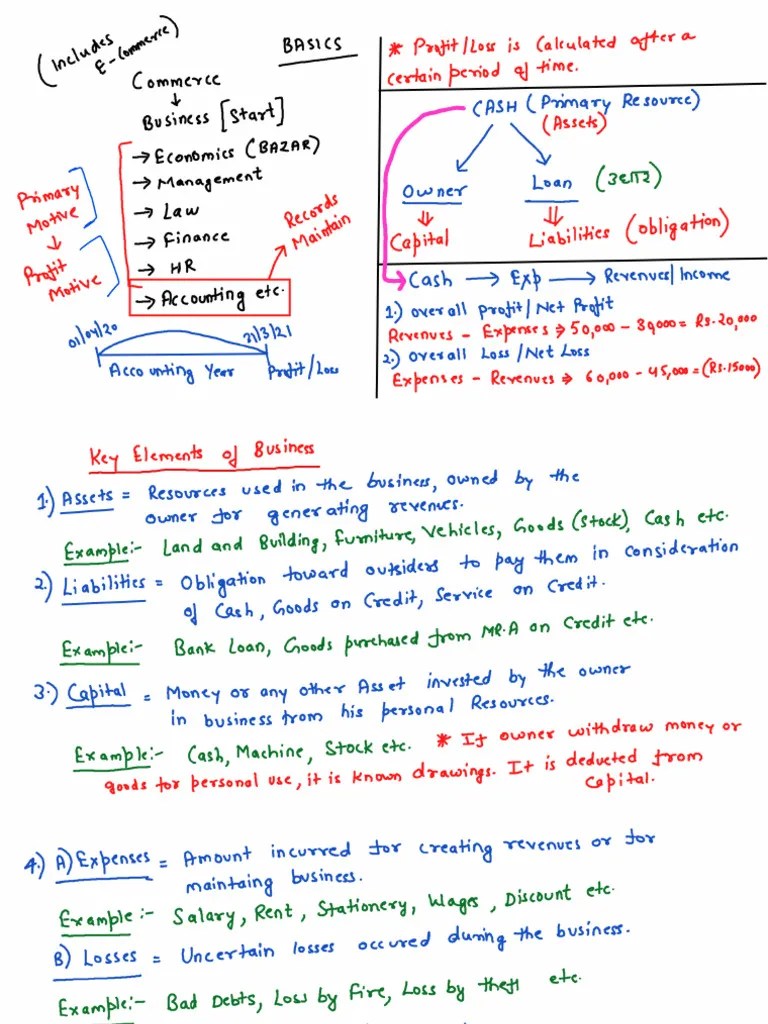 (Includes E-Commerce)
BASICS
Commerce
↓
Business [Start]
→ Economics (BAZAR)
→ Management
→ Law
→ Finance
→ HR
→ Accounting etc.
Primary Motive
↓
Profit Motive
Records Maintain
01/04/20
31/3/21
Accounting Year
Profit/Loss
* Profit/Loss is Calculated after a
certain period of time.
CASH (Primary Resource)
(Assets)
Owner
Loan (उधार)
⇓ ⇓
Capital
Liabilities (obligation)
Cash → Exp → Revenues/Income
1.) overall profit/Net Profit
Revenues - Expenses ⇒ 50,000 - 30,000 = Rs.20,000
2.) overall Loss/Net Loss
Expenses - Revenues ⇒ 60,000 - 45,000 = (Rs.15000)
Key Elements of Business
1.) Assets = Resources used in the business, owned by the
owner for generating revenues.
Example:- Land and Building, Furniture, Vehicles, Goods (Stock), Cash etc.
2.) Liabilities = Obligation toward outsiders to pay them in consideration
of Cash, Goods on Credit, Service on Credit.
Example:- Bank Loan, Goods purchased from MR.A on Credit etc.
3.) Capital = Money or any other Asset invested by the owner
in business from his personal Resources.
Example:- Cash, Machine, Stock etc. * If owner withdraw money or
goods for personal use, it is known drawings. It is deducted from
Capital.
4.) A) Expenses = Amount incurred for creating revenues or for
maintaing business.
Example:- Salary, Rent, Stationery, Wages, Discount etc.
B) Losses = Uncertain losses occured during the business.
Example:- Bad Debts, Loss by Fire, Loss by theft etc.